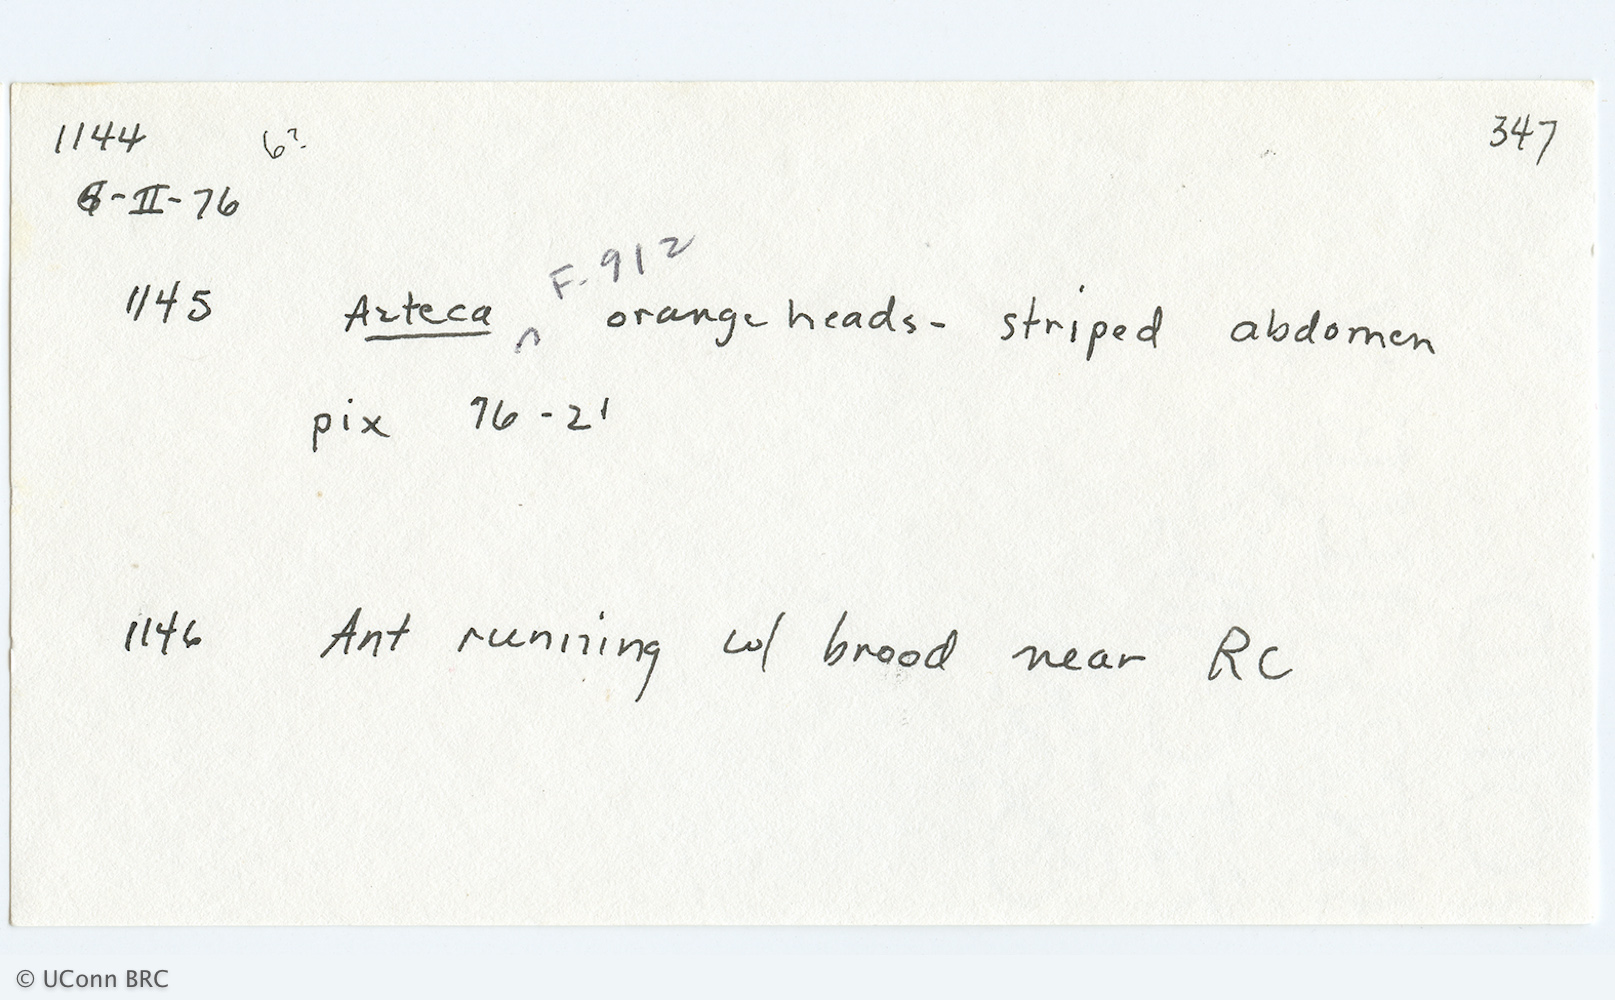 1144 6? 347
6-II-76
1145 Azteca ^ F-912 orange heads - striped abdomen
pix 76-21
1146 Ant running w/ brood near RC
© UConn BRC